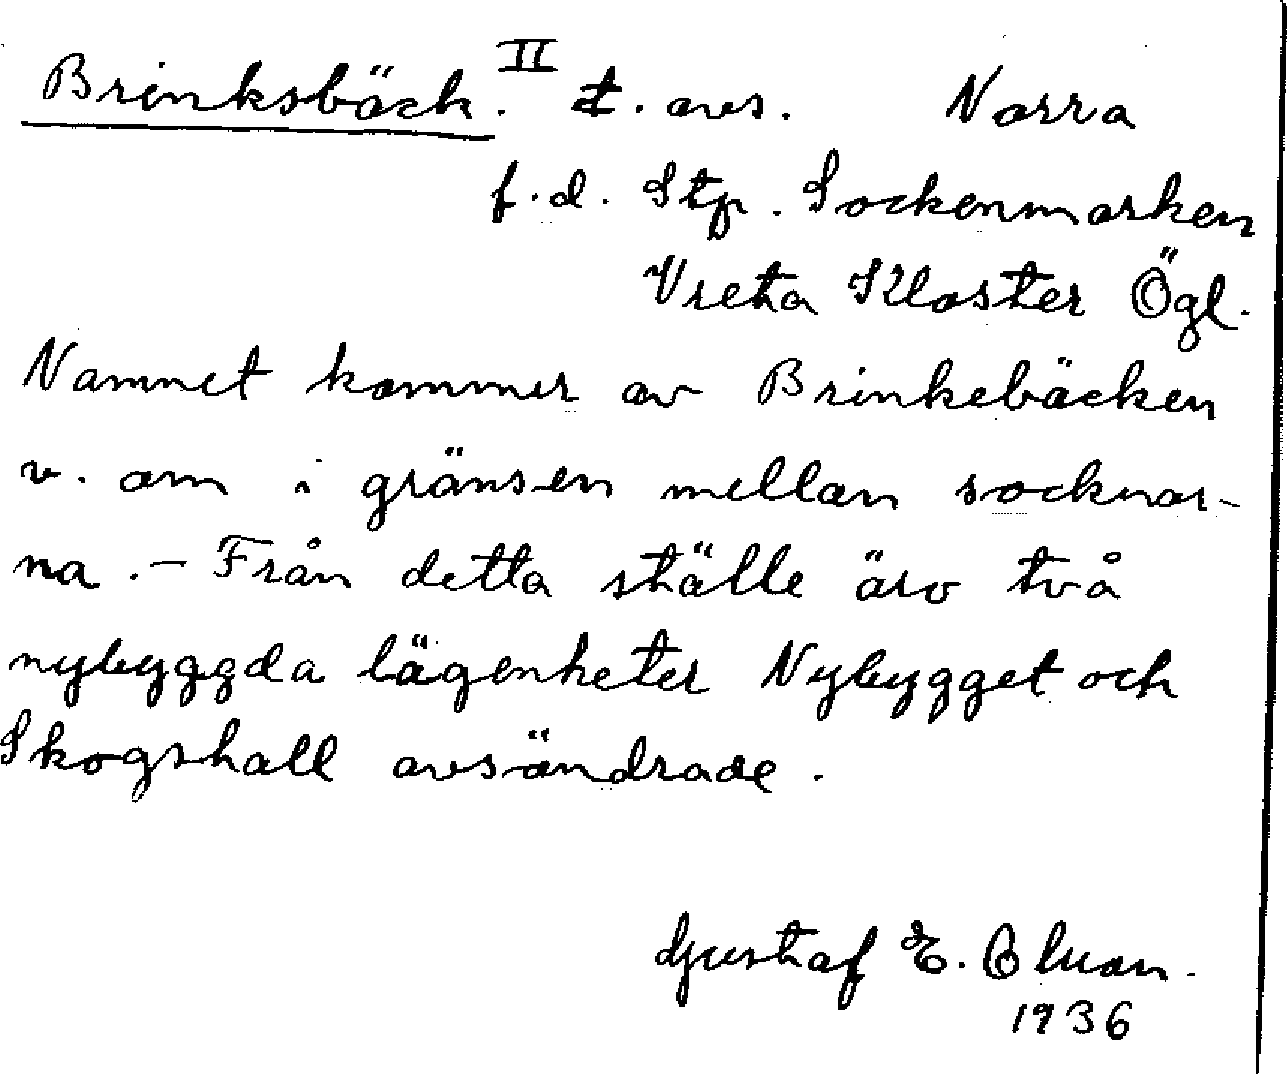 Brinksbäck. II t. avs. Norra
f.d. Stp. Sockenmarken
Vreta Kloster Ögl.
Namnet kommer av Brinkebäcken
v. om i gränsen mellan socknar-
na. - Från detta ställe äro två
nybyggda lägenheter Nybygget och
Skogshall avsöndrade.
Gustaf E.
1936